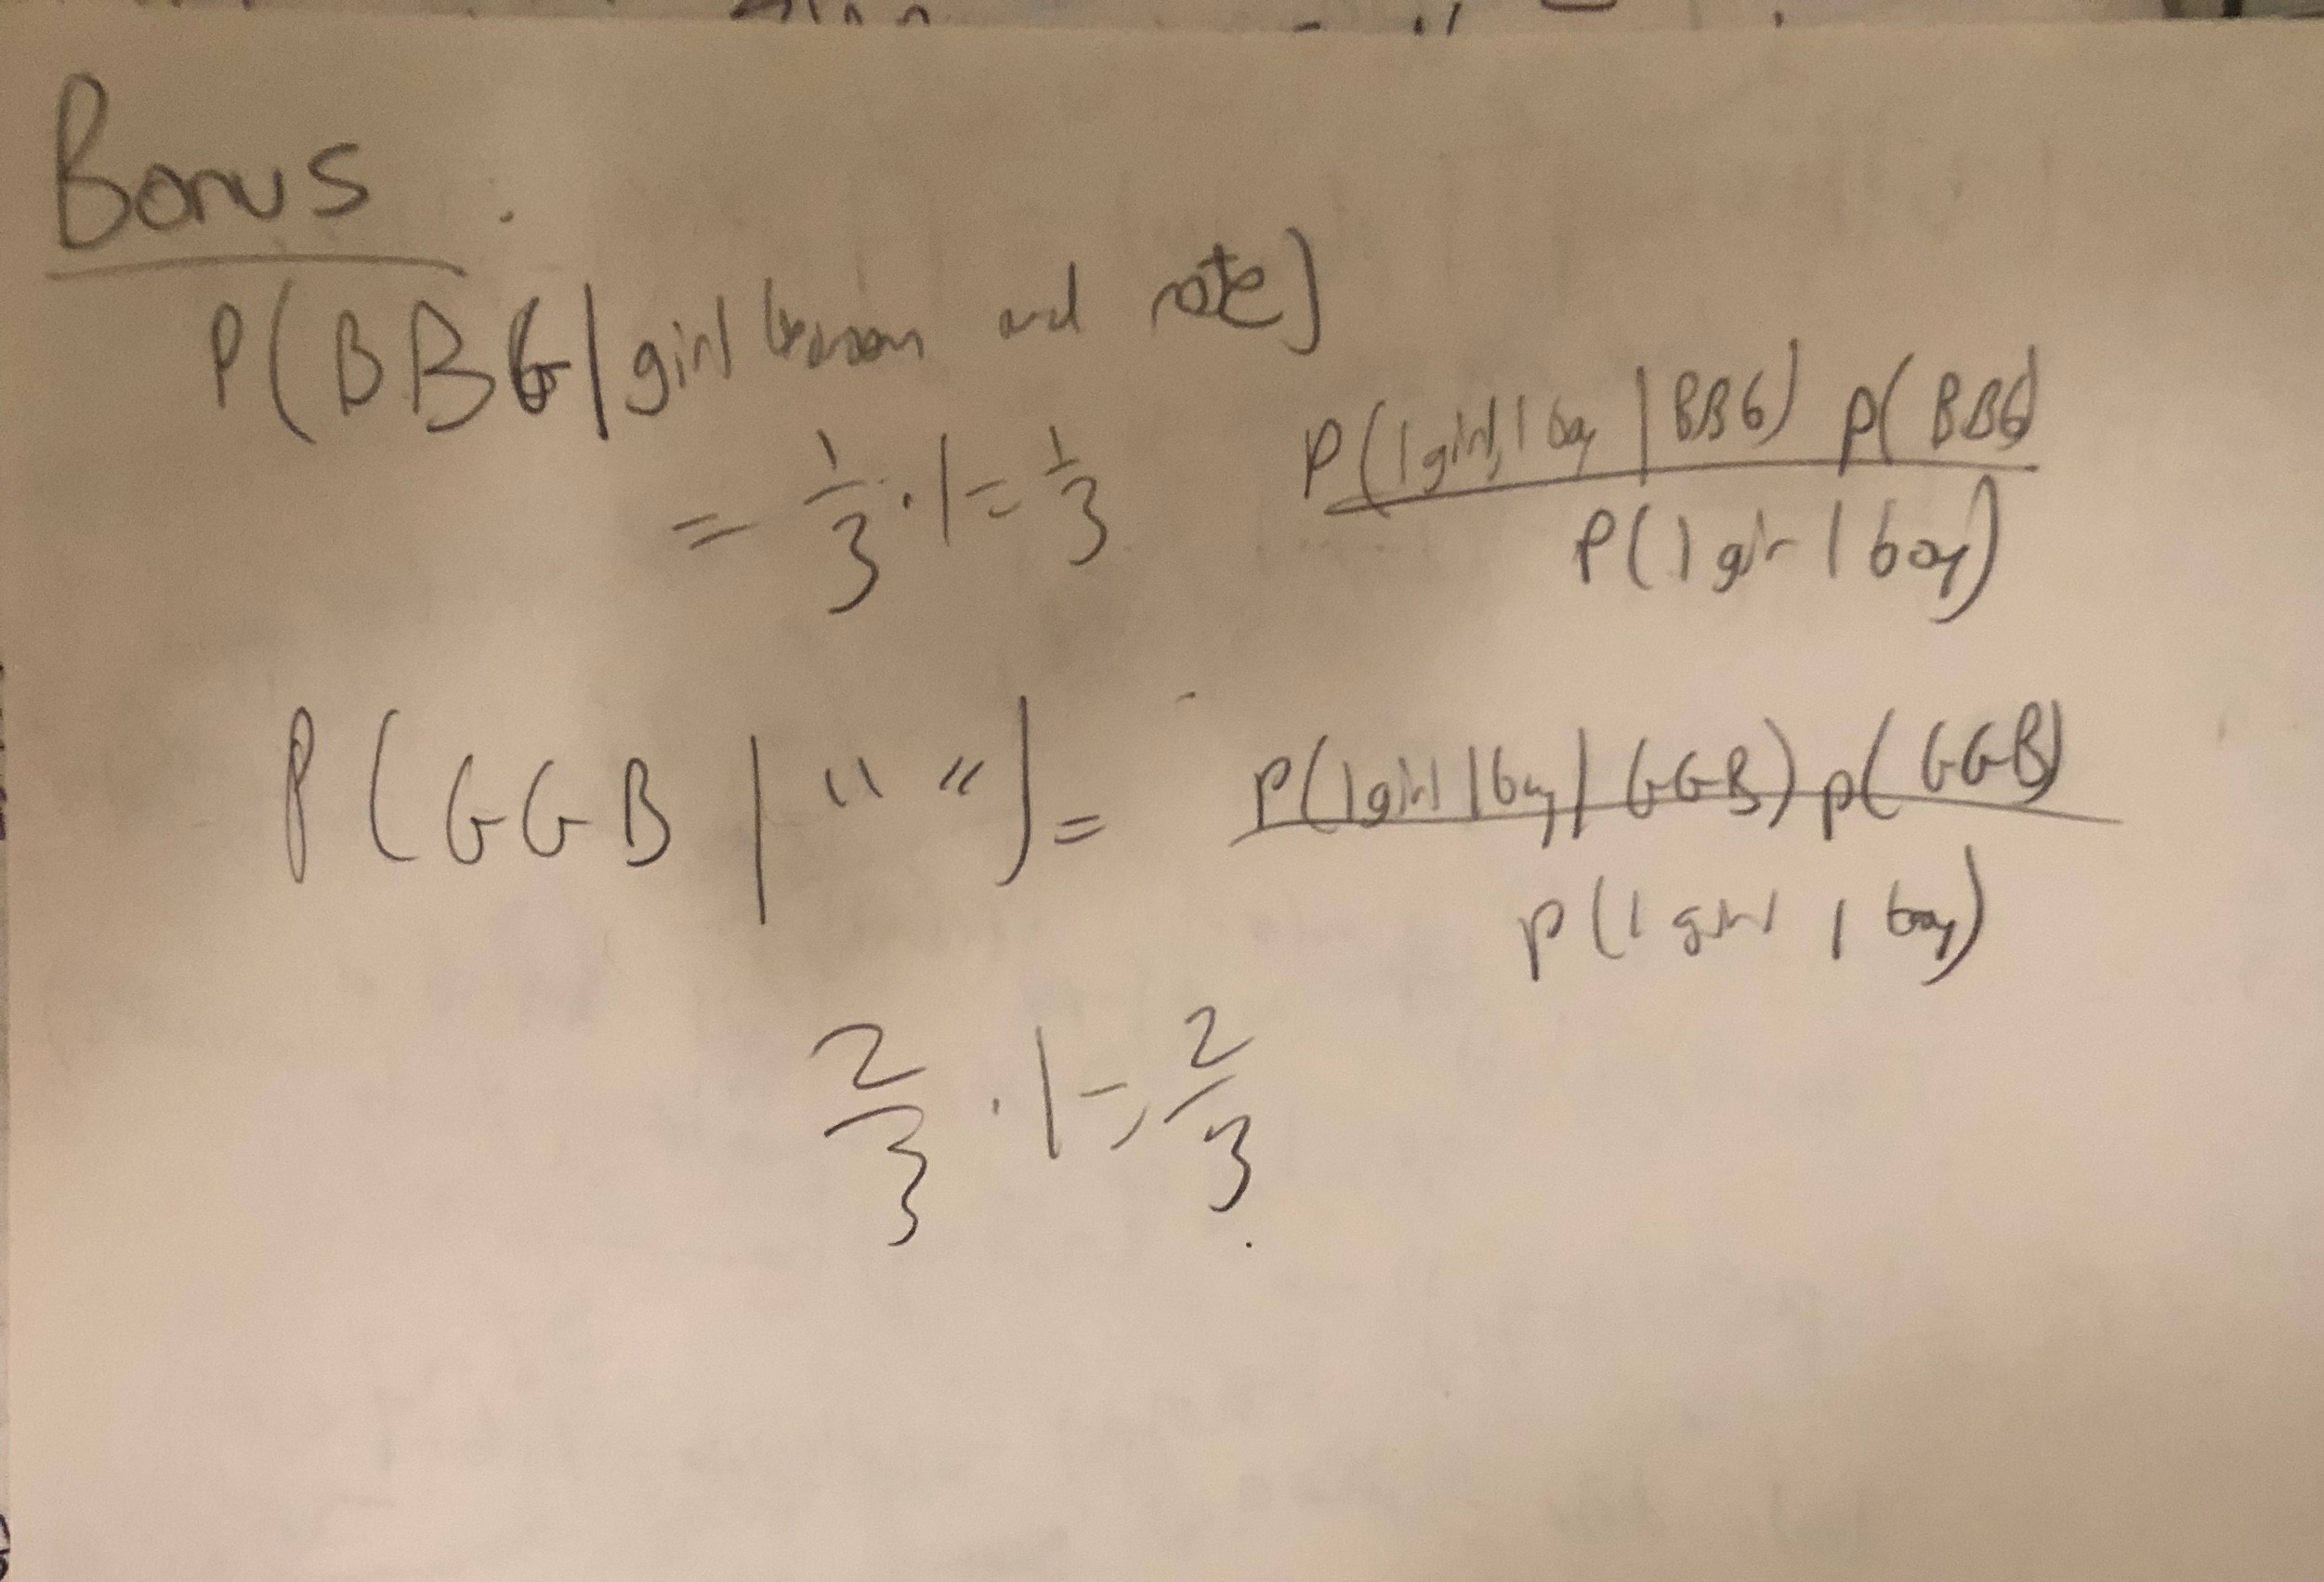 Bonus
P(BBG | girl and note)
= 1/3 · 1 = 1/3
P(1 girl, 1 boy | BBG) P(BBG)
P(1 gir 1 boy)
P(GGB | " ") =
P(1 girl 1 boy | GGB) P(GGB)
P(1 girl 1 boy)
2/3 · 1 = 2/3